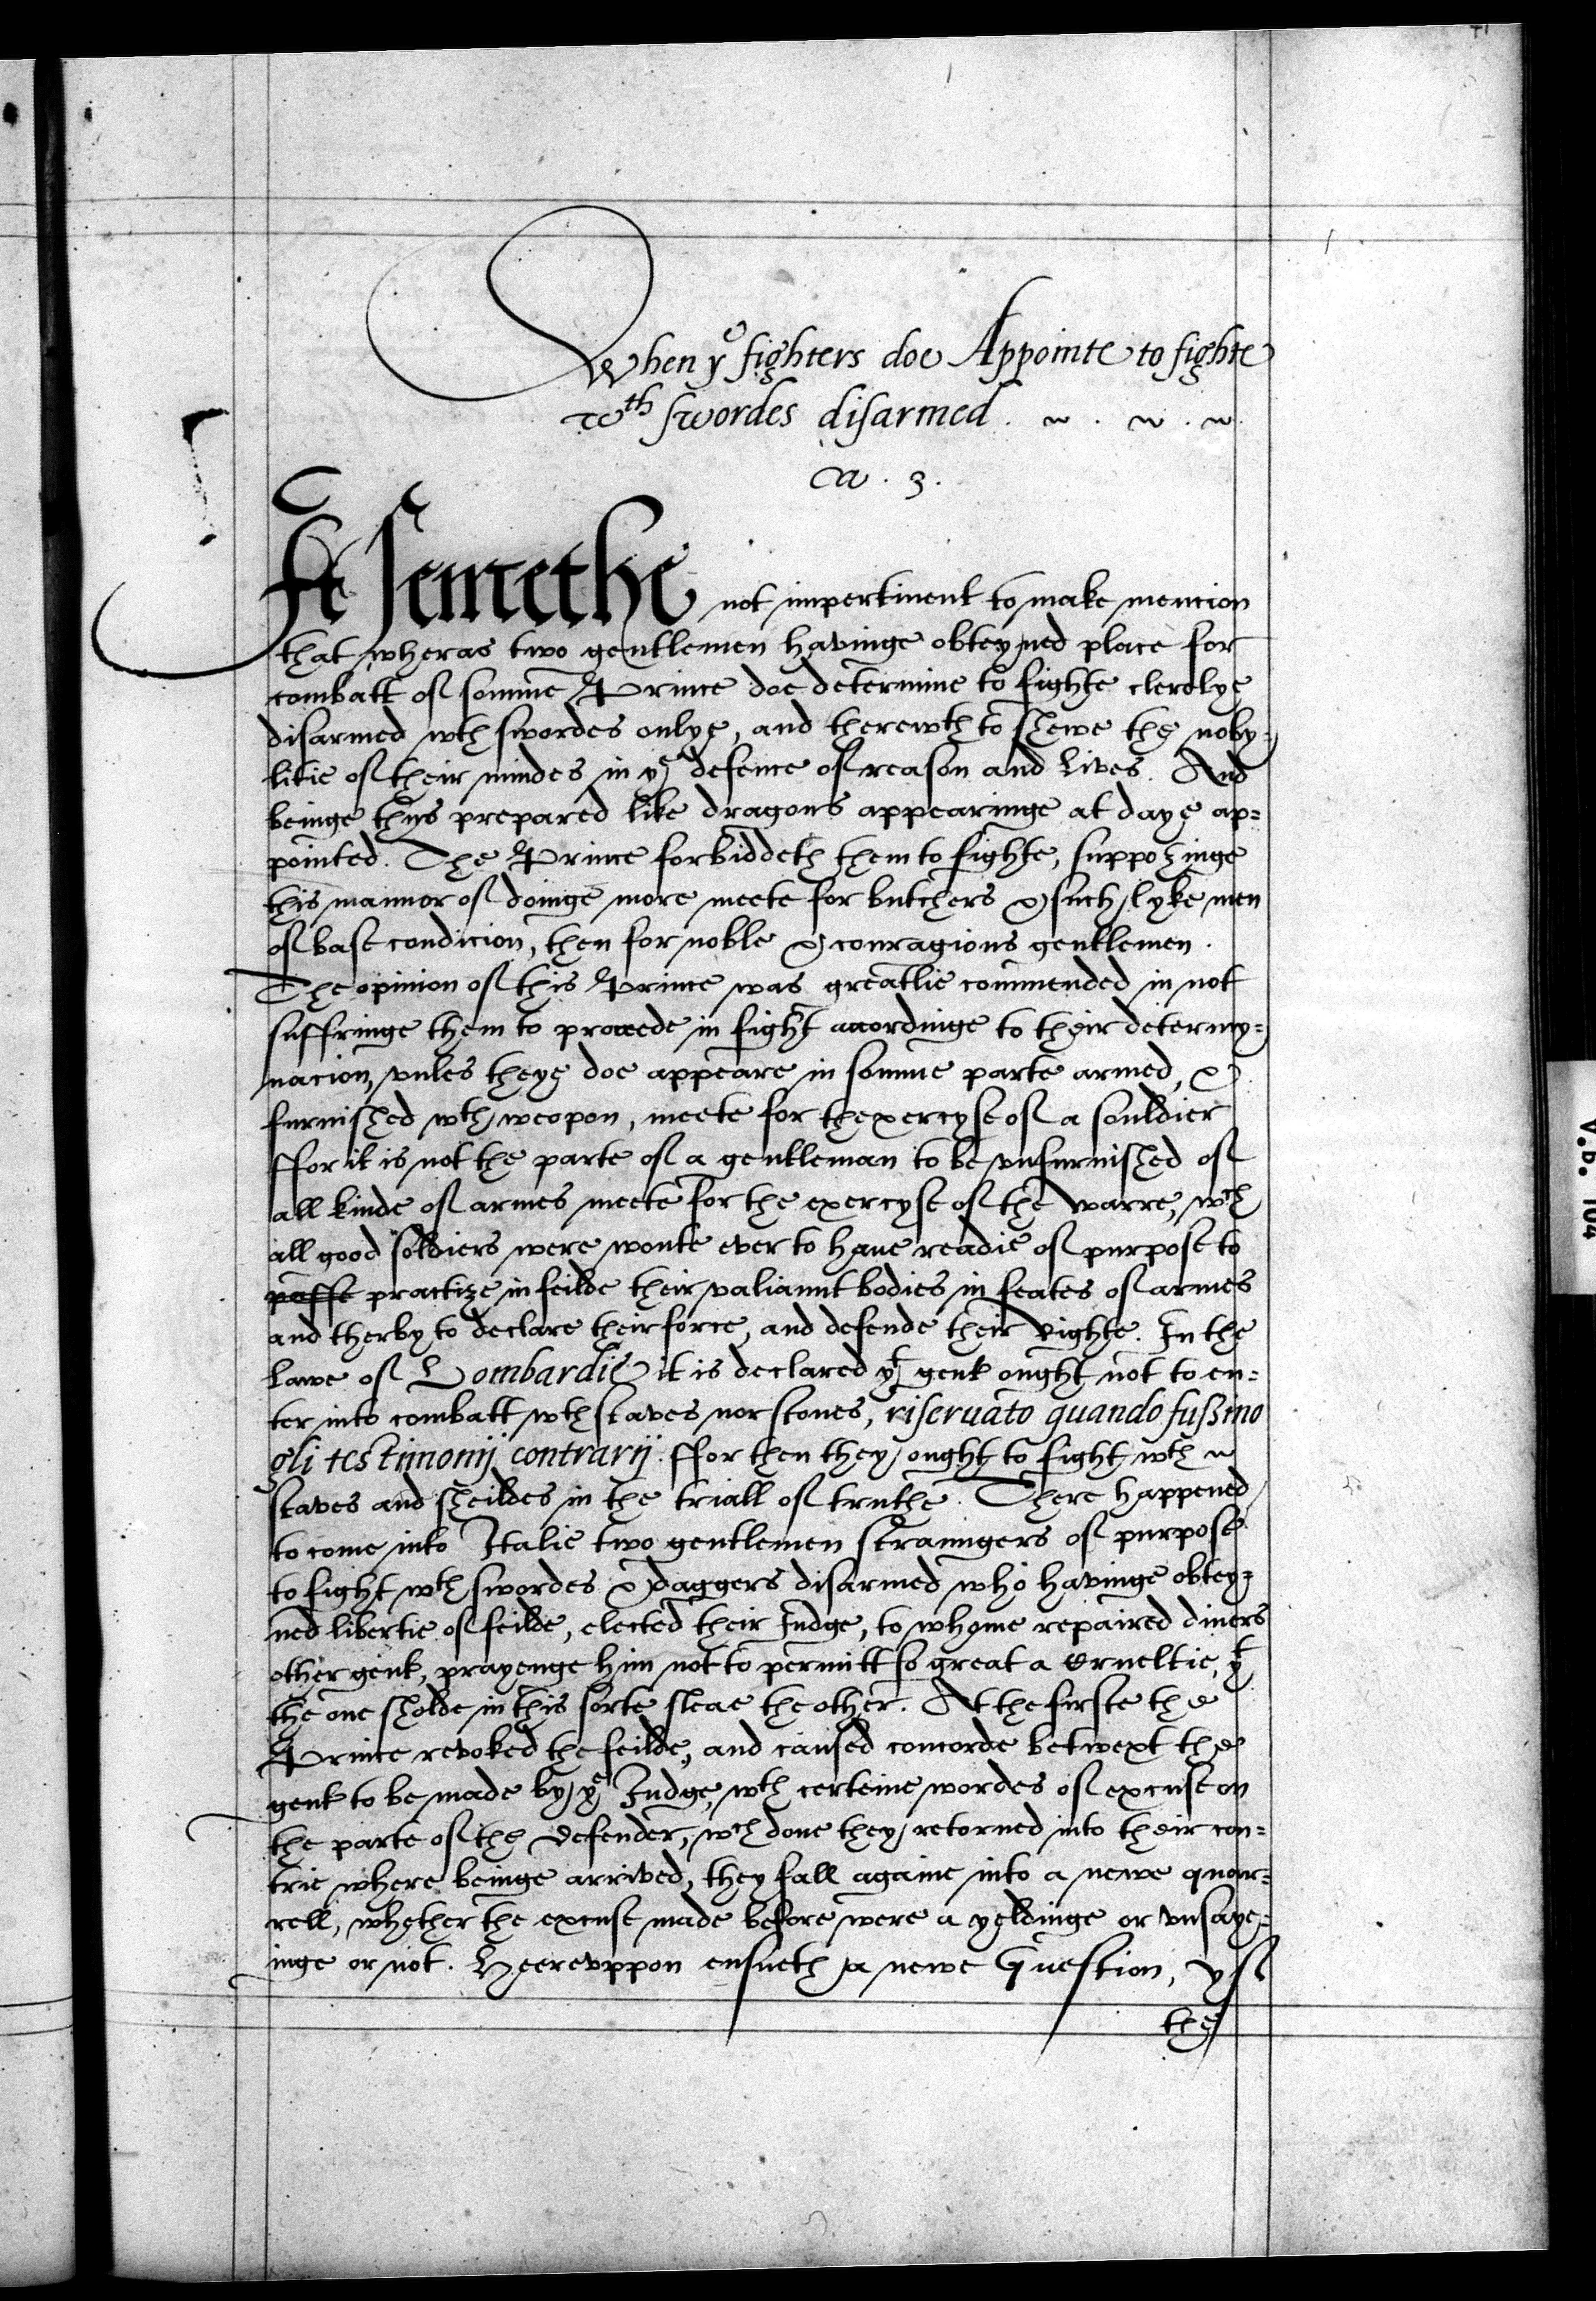 When yͤ fighters doe Appointe to fighte
wth swordes disarmed . ~ . ~ . ~
Ca . 3 .
It semethe not impertinent to make mencion
that wheras two gentlemen havinge obteyned place for
combatt of somme Prince doe determine to fighte clerelye
disarmed wth swordes onlye, and therewth to shewe the noby-
litie of their mindes in yͤ defence of reason and lives. And
beinge thus prepared like dragons appearinge at daye ap=
pointed. The Prince forbiddeth them to fighte, supposinge
this mannor of doinge more meete for butchers & such lyke men
of base condicion, then for noble & couragious gentlemen .
The opinion of this Prince was greatlie commended in not
suffringe them to proceede in fight accordinge to their determy=
nacion, vnles theye doe appeare in somme parte armed, &
furnished wth weopon, meete for thexercyse of a souldier
ffor it is not the parte of a gentleman to be vnfurnished of
all kinde of armes meete for the exercyse of the warre, wch
all good soldiers were wonte ever to haue readie of purpose to
passe practize in feilde their valiaunt bodies in feates of armes
and therby to declare their force, and defende their Righte. In the
Lawe of Lombardie it is declared yͭ gent ought not to en=
ter into combatt wth staves nor stones, riseruato quando fussino
gli testimonij contrarij. ffor then they ought to fight wth ~
staves and sheildes in the triall of truthe. There happened
to come into Italie two gentlemen straungers of purpose
to fight wth swordes & daggers disarmed who havinge obtey=
ned libertie of feilde, elected their Judge, to whome repaired diuers
other gent, prayenge him not to permitt so great a Crueltie, yͭ
the one sholde in this sorte sleae the other. At the firste the
Prince revoked the feilde, and caused concorde betwext the
gent to be made by yͤ Judge, wth certeine wordes of excuse on
the parte of the Defender, wch done they retorned into their con=
trie where beinge arrived, they fall againe into a newe quar=
rell, whether the excuse made before were a yeldinge or vnsaye=
inge or not. Heerevppon ensueth a newe Question, yf
the
V.b. 104